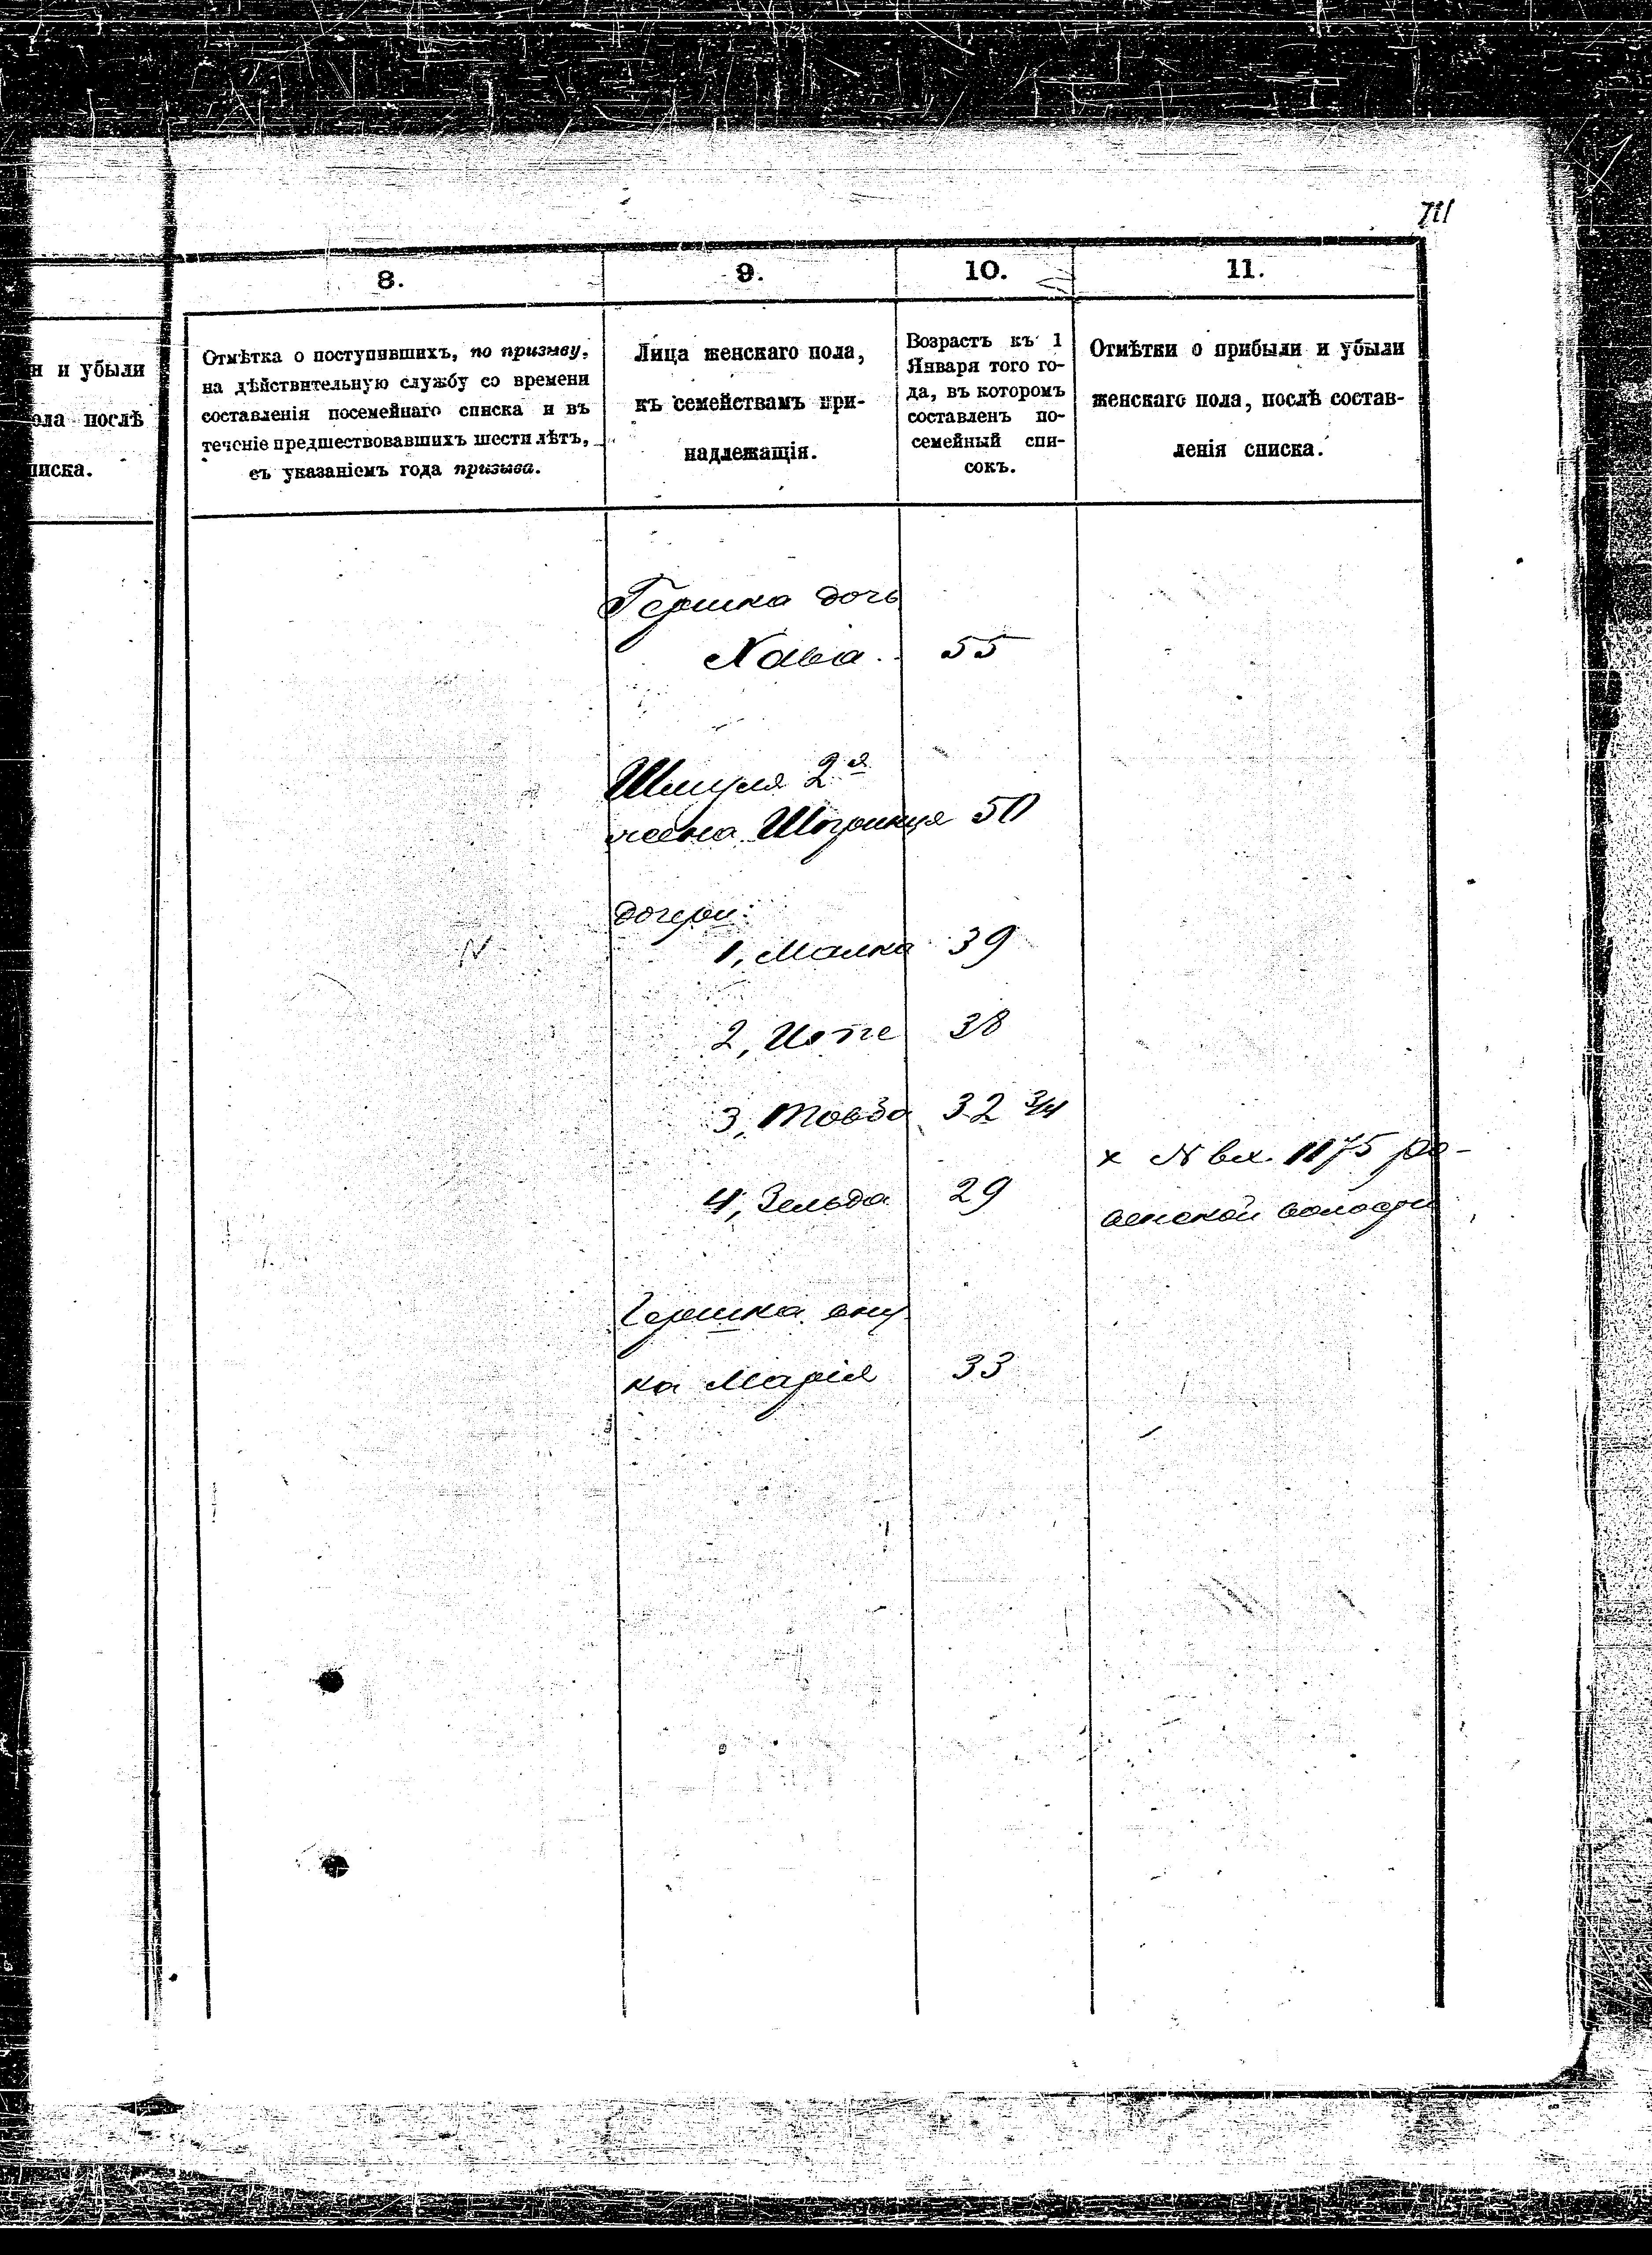 711
8.
9.
10.
11.
и убыли
послѣ
Отмѣтка о поступившихъ, по призыву,
на дѣйствительную службу со времени
составленія посемейнаго списка и въ
теченіе предшествовавшихъ шести лѣтъ,
съ указаніемъ года призыва.
Лица женскаго пола,
къ семействамъ при-
надлежащія.
Возрастъ къ 1
Января того го-
да, въ которомъ
составленъ по-
семейный спи-
сокъ.
Отмѣтки о прибыли и убыли
женскаго пола, послѣ состав-
ленія списка.
Гершка дочь
Хава 55
Шмуля 2я
жена Шпринця 50
дочери:
1, Малка 39
2, 38
3, Товба 32 3/4
4, Зельда 29
х N вх. 1175
волости
Гершка вну
ка Марія 33